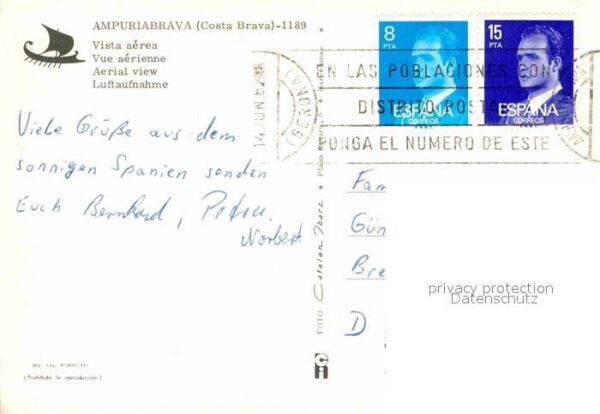 AMPURIABRAVA (Costa Brava)-1189
Vista aérea
Vue aérienne
Aerial view
Luftaufnahme
8 PTA
ESPAÑA
CORREOS
15 PTA
ESPAÑA
CORREOS
14 JUN
(GERONA)
EN LAS POBLACIONES CON
DISTRITO POSTAL
PONGA EL NUMERO DE ESTE
Viele Grüße aus dem
sonnigen Spanien senden
Euch Bernhard, Petra,
Norbert
FOTO Catalan Ibarz
Fam
Gün
Bre
D
privacy protection
Datenschutz
(Prohibida la reproducción)